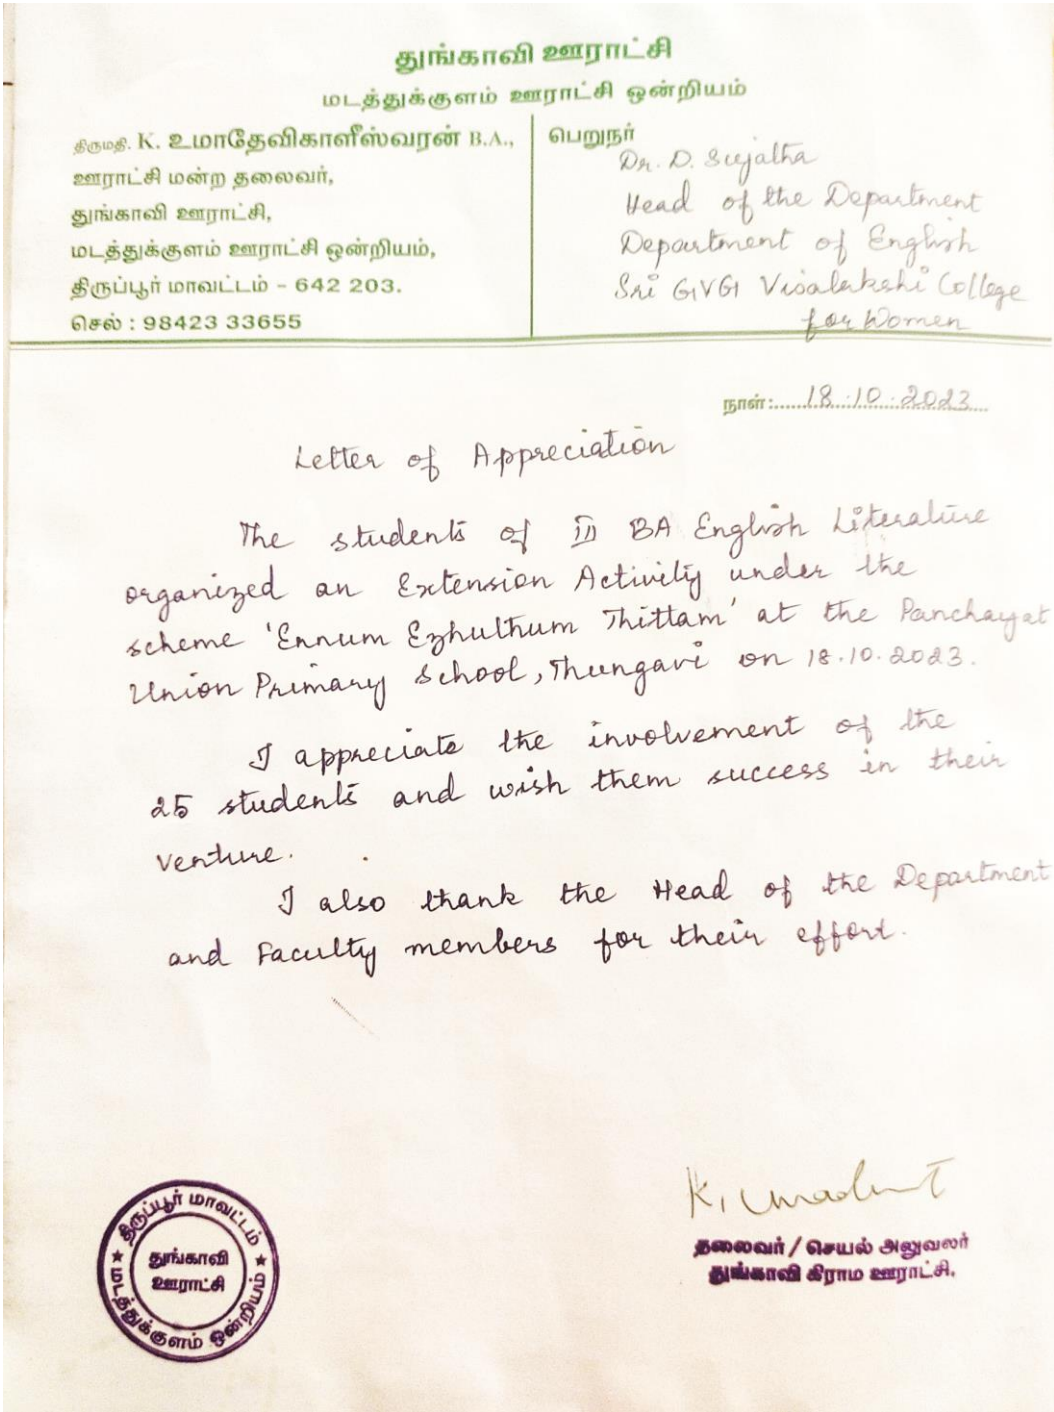 துங்காவி ஊராட்சி
மடத்துக்குளம் ஊராட்சி ஒன்றியம்
திருமதி. K. உமாதேவிகாளீஸ்வரன் B.A.,
ஊராட்சி மன்ற தலைவர்,
துங்காவி ஊராட்சி,
மடத்துக்குளம் ஊராட்சி ஒன்றியம்,
திருப்பூர் மாவட்டம் - 642 203.
செல் : 98423 33655
பெறுநர்
Dr. D. Sujatha
Head of the Department
Department of English
Sri GVG Visalakshi College
for Women
நாள்: 18.10.2023
Letter of Appreciation
The students of III BA English Literature
organized an Extension Activity under the
scheme 'Ennum Ezhuthum Thittam' at the Panchayat
Union Primary School, Thungavi on 18.10.2023.
I appreciate the involvement of the
25 students and wish them success in their
venture.
I also thank the Head of the Department
and Faculty members for their effort.
திருப்பூர் மாவட்டம்
துங்காவி
ஊராட்சி
மடத்துக்குளம் ஒன்றியம்
தலைவர் / செயல் அலுவலர்
துங்காவி கிராம ஊராட்சி.